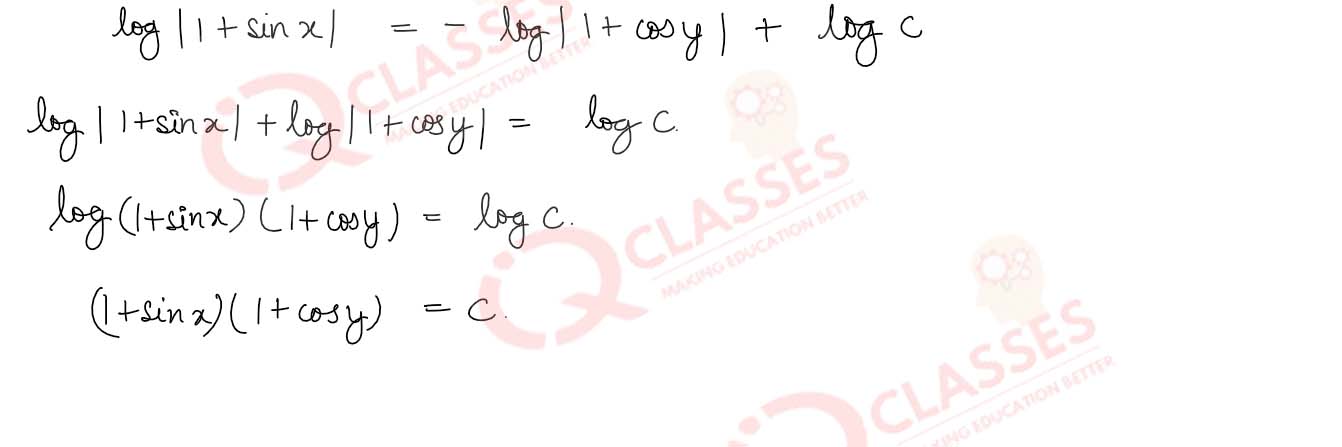 log |1 + sin x| = - log |1 + cos y| + log c
log |1 + sin x| + log |1 + cos y| = log c.
log (1 + sin x) (1 + cos y) = log c.
(1 + sin x) (1 + cos y) = c.
CLASSES
MAKING EDUCATION BETTER
CLASSES
MAKING EDUCATION BETTER
CLASSES
MAKING EDUCATION BETTER